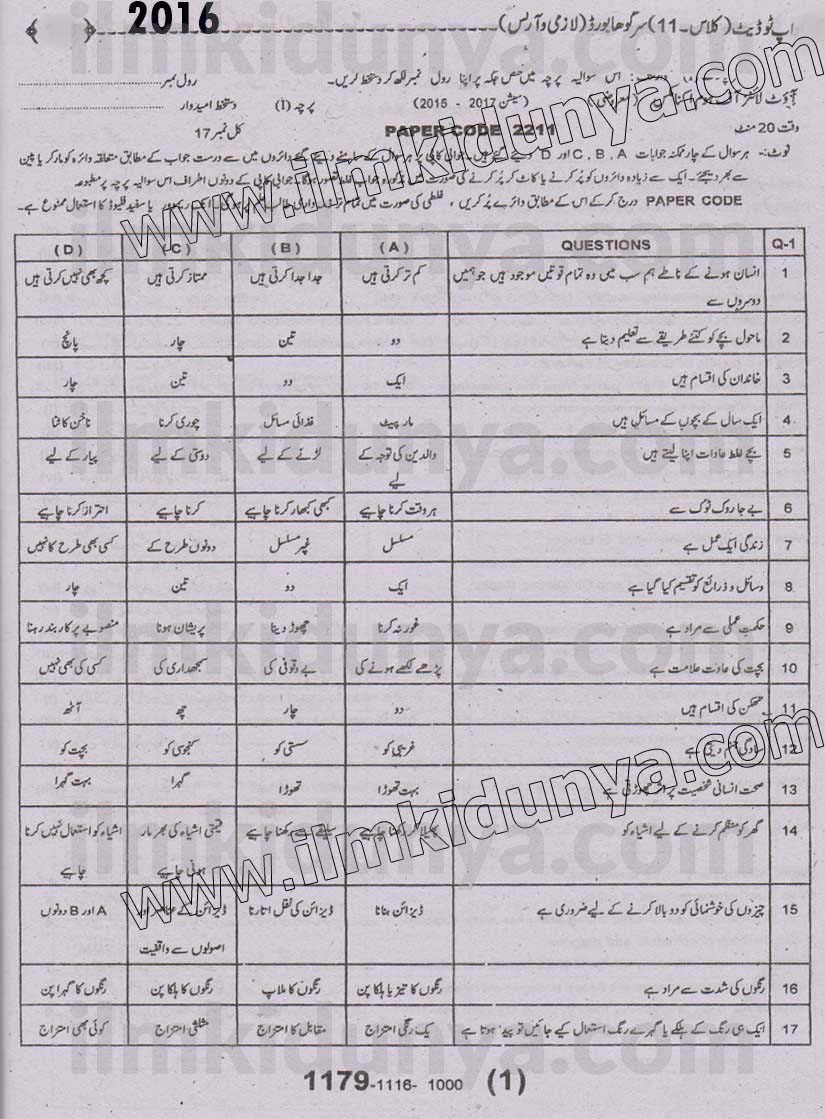 2016
اپ ٹو ڈیٹ (کلاس - 11) سرگودھا بورڈ (لازمی و آرٹس)
اس سوالیہ پرچہ میں مختص جگہ پر اپنا رول نمبر لکھ کر دستخط کریں۔ رول نمبر
آؤٹ لائنز آف ہوم اکنامکس (معروضی) (سیشن 2017 - 2015) پرچہ (I) دستخط امیدوار
وقت 20 منٹ PAPER CODE 2211 کل نمبر 17
نوٹ:- ہر سوال کے چار ممکنہ جوابات A ,B ,C اور D دیئے گئے ہیں۔ جوابی کاپی پر ہر سوال کے سامنے دیئے گئے دائروں میں سے درست جواب کے مطابق متعلقہ دائرہ کو مارکر یا پین
سے بھر دیجئے۔ ایک سے زیادہ دائروں کو پُر کرنے یا کاٹ کر پُر کرنے کی صورت میں مذکورہ جواب غلط تصور ہوگا۔ جوابی کاپی کے دونوں اطراف اس سوالیہ پرچہ پر مطبوعہ
PAPER CODE درج کر کے اس کے مطابق دائرے پُر کریں، غلطی کی صورت میں تمام تر ذمہ داری طالب علم پر ہوگی۔ یا سفید فلیوڈ کا استعمال ممنوع ہے۔
Q-1 QUESTIONS (A) (B) (C) (D)
1 انسان ہونے کے ناطے ہم سب میں وہ تمام قوتیں موجود ہیں جو ہمیں کم تر کرتی ہیں جدا جدا کرتی ہیں ممتاز کرتی ہیں کچھ بھی نہیں کرتی ہیں
دوسروں سے
2 ماحول بچے کو کتنے طریقے سے تعلیم دیتا ہے دو تین چار پانچ
3 خاندان کی اقسام ہیں ایک دو تین چار
4 ایک سال کے بچوں کے مسائل ہیں مار پیٹ غذائی مسائل چوری کرنا ناخن کاٹنا
5 بچے غلط عادات اپنا لیتے ہیں والدین کی توجہ کے لڑنے کے لیے دوستی کے لیے پیار کے لیے
لیے
6 بے جا روک ٹوک سے ہر وقت کرنا چاہیے کبھی کبھار کرنا چاہیے کرنا چاہیے احتراز کرنا چاہیے
7 زندگی ایک عمل ہے مسلسل غیر مسلسل دونوں طرح کے کسی بھی طرح کا نہیں
8 وسائل و ذرائع کو تقسیم کیا گیا ہے ایک دو تین چار
9 حکمت عملی سے مراد ہے غور نہ کرنا چھوڑ دینا پریشان ہونا منصوبے پر کاربند رہنا
10 بچت کی عادت علامت ہے پڑھے لکھے ہونے کی بے وقوفی کی سمجھداری کی کسی کی بھی نہیں
11 تھکن کی اقسام ہیں دو چار چھ آٹھ
12 سادگی جنم دیتی ہے غریبی کو سستی کو کنجوسی کو بچت کو
13 صحت انسانی شخصیت پر اثر چھوڑتی ہے بہت تھوڑا تھوڑا گہرا بہت گہرا
14 گھر کو منظم کرنے کے لیے اشیاء کو پھیلا کر رکھنا چاہیے سلیقے سے رکھنا چاہیے قیمتی اشیاء کی بھر مار اشیاء کو استعمال نہیں کرنا
ہونی چاہیے چاہیے
15 چیزوں کی خوشنمائی کو دوبالا کرنے کے لیے ضروری ہے ڈیزائن بنانا ڈیزائن کی نقل اتارنا ڈیزائن کے عناصر اور A اور B دونوں
اصولوں سے واقفیت
16 رنگوں کی شدت سے مراد ہے رنگوں کا تیز یا ہلکا پن رنگوں کا ملاپ رنگوں کا ہلکا پن رنگوں کا گہرا پن
17 ایک ہی رنگ کے ہلکے یا گہرے رنگ استعمال کیے جائیں تو پیدا ہوتا ہے یک رنگی امتزاج مقابل کا امتزاج مثلثی امتزاج کوئی بھی امتزاج
1179-1116- 1000 (1)
www.ilmkidunya.com
www.ilmkidunya.com
ilmkidunya.com
ilmkidunya.com
ilmkidunya.com
ilmkidunya.com
ilmkidunya.com